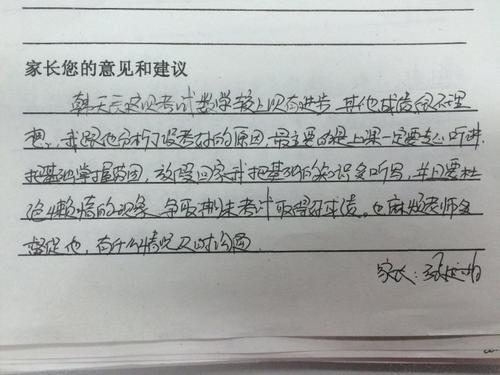 家长您的意见和建议
韩天云这次考试数学较上次有进步,其他成绩很不理
想,我跟他分析了没考好的原因,最主要的是上课一定要专心听讲,
把基础掌握牢固,放假回家我把基础的知识多听写,并且要杜
绝懒惰的现象,争取期末考试取得好成绩。也麻烦老师多
督促他,有什么情况及时沟通。
家长:张